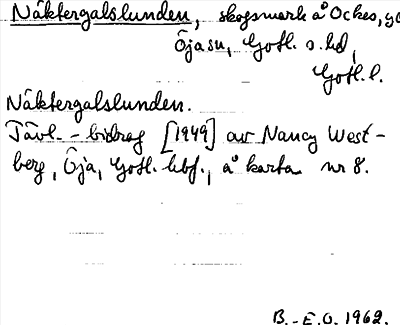 Näktergalslunden, skogsmark å Ockes,
Öja sn, Gotl. s. hd,
Gotl. l.
Näktergalslunden.
Tävl.-bidrag [1949] av Nancy West-
berg, Öja, Gotl. hbf., å karta nr 8.
B.-E.O. 1962.